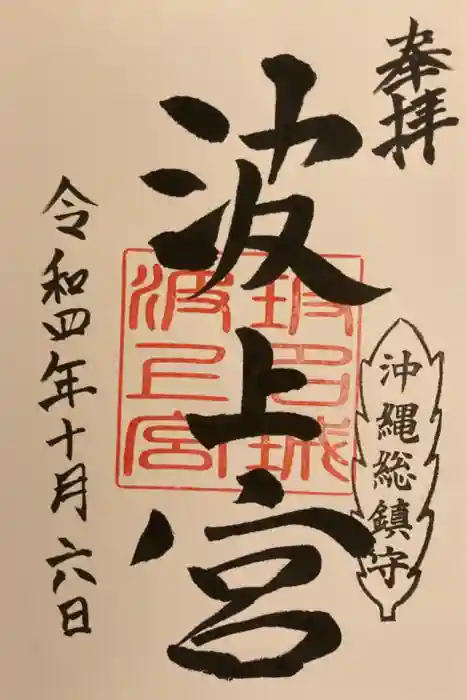 奉拝
沖縄総鎮守
波上宮
玻名城
波上宮
令和四年十月六日